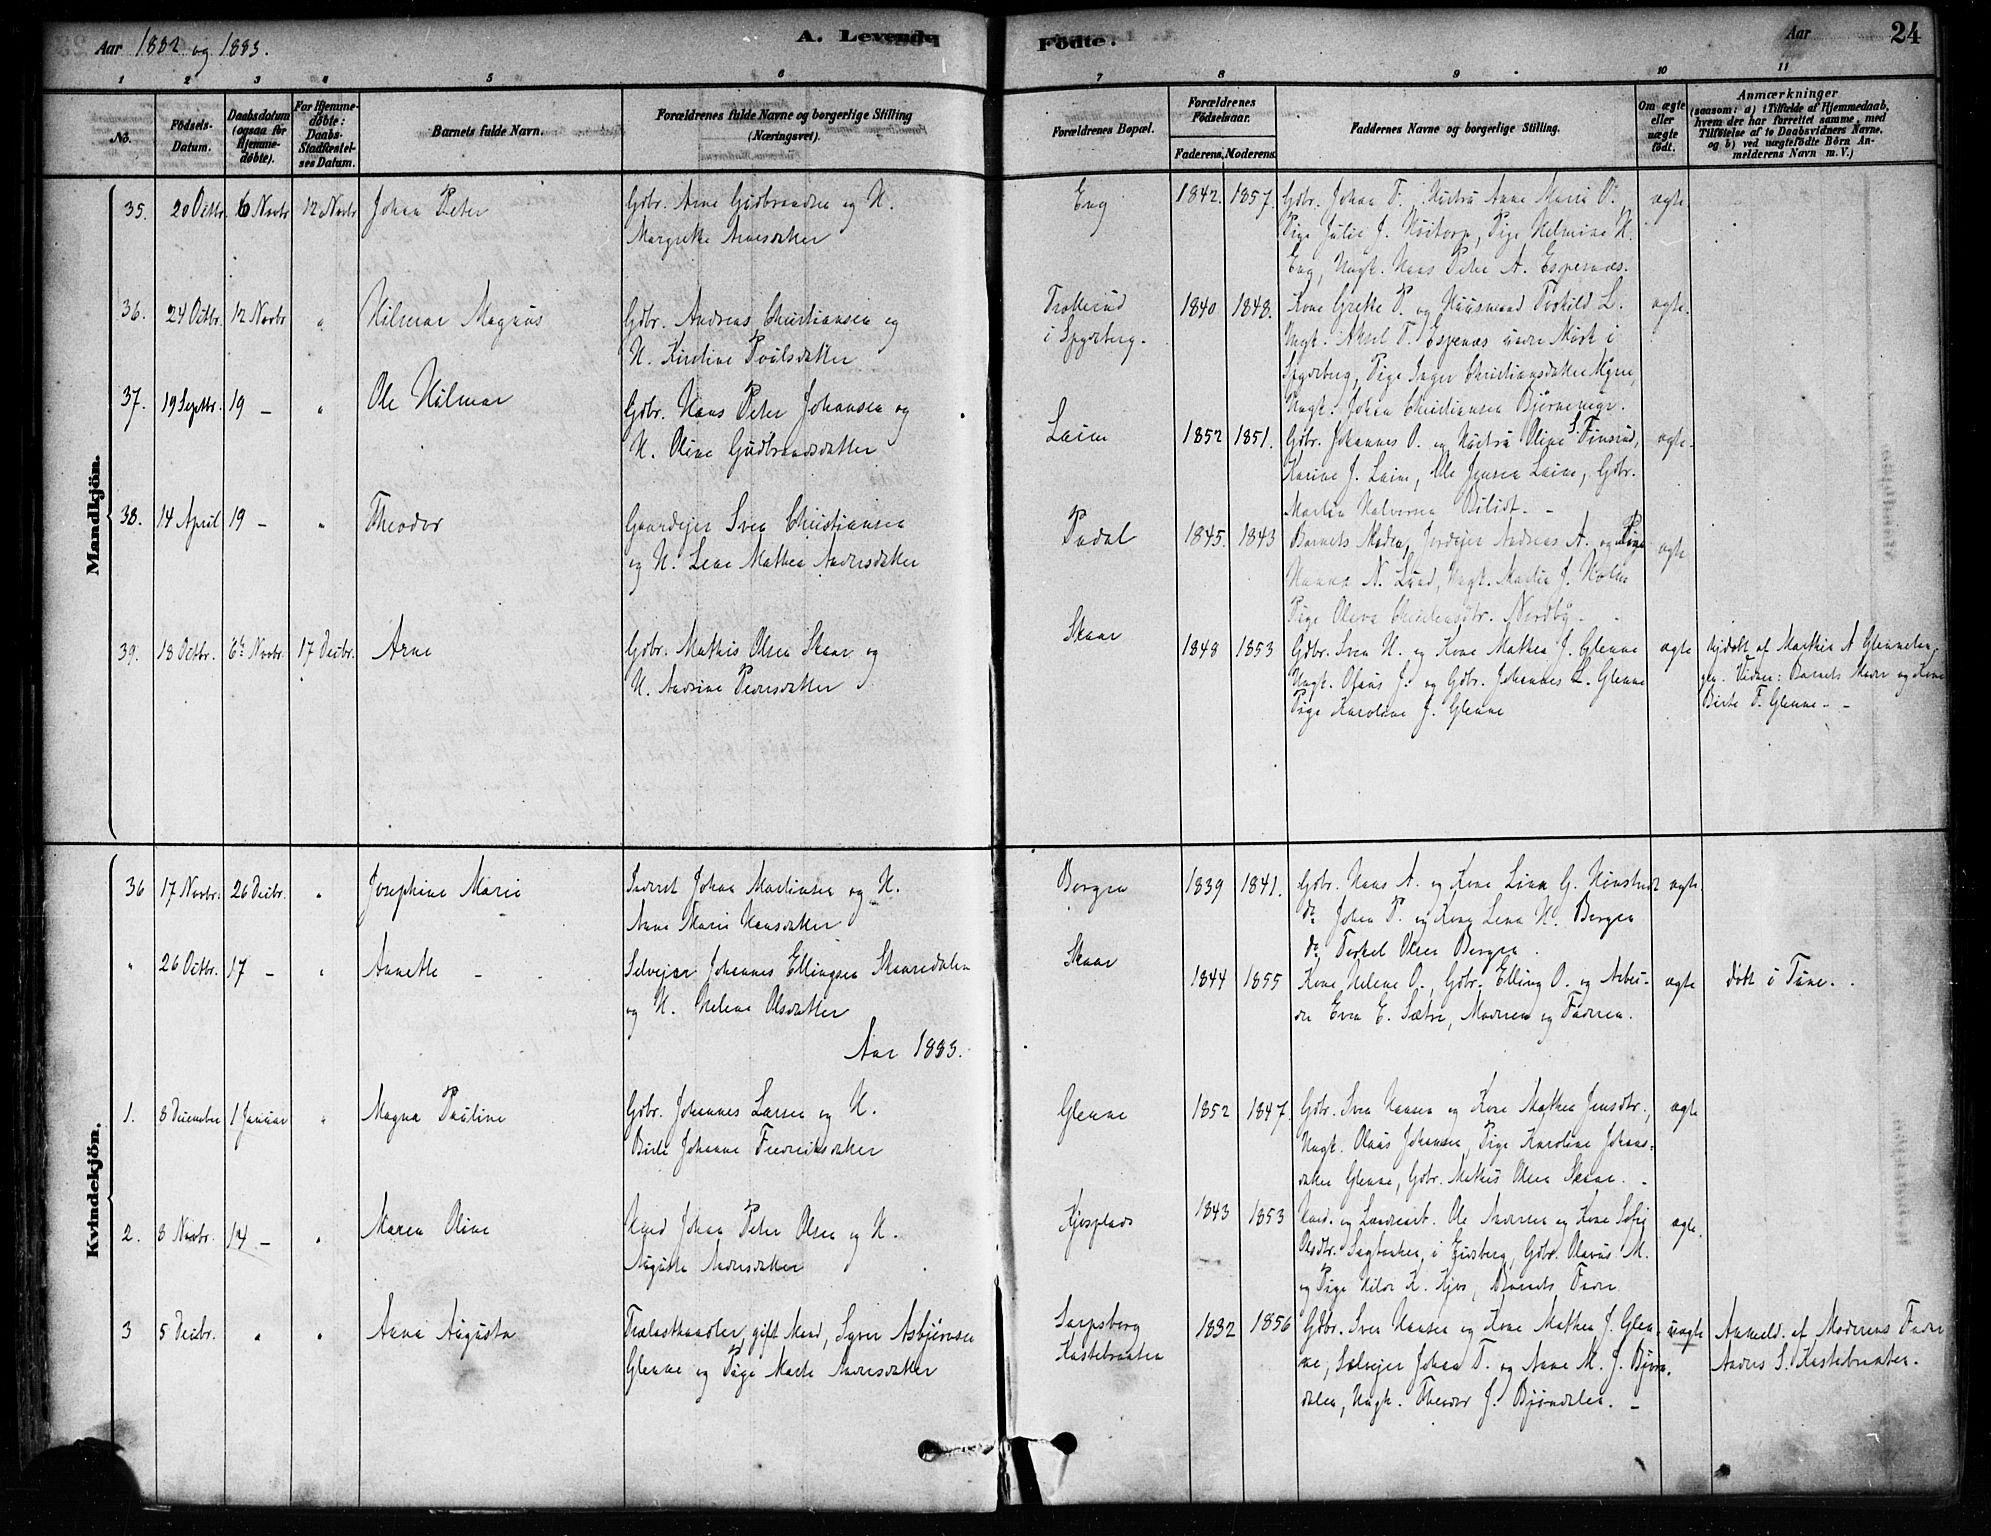 Aar 1882 og 1883.
A. Levende Födte.
Aar
24
1 2 3 4 5 6 7 8 9 10 11
No.
Födsels-Datum.
Daabsdatum (ogsaa för Hjemmedöbte).
For Hjemmedöbte: Daabs-Stadfæstelses Datum.
Barnets fulde Navn.
Forældrenes fulde Navne og borgerlige Stilling (Næringsvei).
Forældrenes Bopæl.
Forældrenes Födselsaar.
Faderens. Moderens.
Faddernes Navne og borgerlige Stilling.
Om ægte eller uægte födt.
Anmærkninger
(saasom: a) i Tilfælde af Hjemmedaab, hvem der har forrettet samme, med Tilföielse af to Daabsvidners Navne, og b) ved uægtefödte Börn Anmelderens Navn m. V.)
Mandkjön.
35. 20 Octbr. 6 Novbr 12 Novbr Johan Peter Gdbr. Arne Gudbrandsen og H. Eng 1842. 1857. Gdbr. Johan F. Hustru Anne Marie O. ægte.
Margrethe Arnesdatter Pige Julie J. Höitorp, Pige Helmine H.
Eng, Ungk. Hans Peter A. Espenæs.
36. 24 Octbr. 12 Novbr " Hilmar Magnus Gdbr. Andreas Christiansen og Trollerud 1840 1848. Kone Grethe P. og Huusmand Torkild L. ægte.
H. Kirstine Poulsdatter i Spydeberg. Ungk. Aksel T. Espenæs nedre Mörk i
Spydeberg, Pige Inger Christiansdatter
Ungk. Johan Christiansen
37. 19 Septbr. 19 - " Ole Hilmar Gdbr. Hans Peter Johansen og Laim 1852 1851. Gdbr. Johannes O. og Hustru Oline S. Finsrud, ægte.
H. Oline Gudbrandsdatter Karine J. Laim, Ole Jensen Laim, Gdbr.
Martin Halvorsen
38. 14 April 19 - " Theodor Gaardejer Sven Christiansen Padal 1845. 1843 Barnets Moder, Jordejer Andreas A. og Pige ægte
og H. Lene Mathea Andersdatter Hanna N. Lund, Ungk. Martin J.
Pige Oleva Christensdtr. Nordby.
39. 18 Octbr. 6te Novbr. 17 Decbr. Arne Gdbr. Mathis Olsen Skaar og Skaar 1848 1853 Gdbr. Sven H. og Kone Mathea J. Glenne ægte Hjdøbt af Marthea A Glenne
H. Andrine Pedersdatter Ungk. Olaus J. og Gdbr. Johannes L. Glenne Vidner: Barnets Moder og Kone
Pige Karoline J. Glenne Birte F. Glenne. -
Kvindekjön.
36 17 Novbr. 26 Decbr. " Josephine Marie Inderst Johan Martinsen og H. Borgen 1839 1841. Gdbr. Hans A. og Kone Lina G. ægte.
Anne Marie Hansdatter do Johan P. og Kone Lena H. Borgen
do Torkel Olsen Borgen.
" 26 Octbr. 17 - " Annette - Selvejer Johannes Ellingsen Skaaredalen Skaar 1844 1855 Kone Helene O., Gdbr. Elling O. og Arbei- ægte döbt i Tune.
og H. Helene Olsdatter der Even E. Sætre, Moderen og Faderen.
Aar 1883.
1. 8 December 1 Januar " Magna Pauline Gdbr. Johannes Larsen og H. Glenne 1852 1847. Gdbr. Sven Hansen og Kone Mathea Jensdtr., ægte
Birte Johanne Fredriksdatter Ungk. Olaus Johansen, Pige Karoline Johans-
datter Glenne, Gdbr. Mathis Olsen Skaar. -
2. 8 Novbr. 14 - " Maren Oline Huusmd Johan Peter Olsen og H. Kjosplads 1843 1853 Husm. og Landarb. Ole Andersen og Kone Sofie ægte.
Auguste Andersdatter Olsdtr. Sagbakken i Eidsberg, Gdbr. Olavus M.
og Pige Hilda K. Kjos, Barnets Fader
3 5 Decbr. " " Anna Augusta Trælasthandler, gift Mand, Syver Asbjörnsen Sarpsborg 1832 1856 Gdbr. Sven Hansen og Kone Mathea J. Glen- uægte Anmeld. af Moderens Fader
Glenne og Pige Marte Andersdatter Kastebraaten ne, Selvejer Johan T. og Anne M. J. Björn- Anders S. Kastebraaten.
dalen, Ungk. Theodor J. Björndalen. -